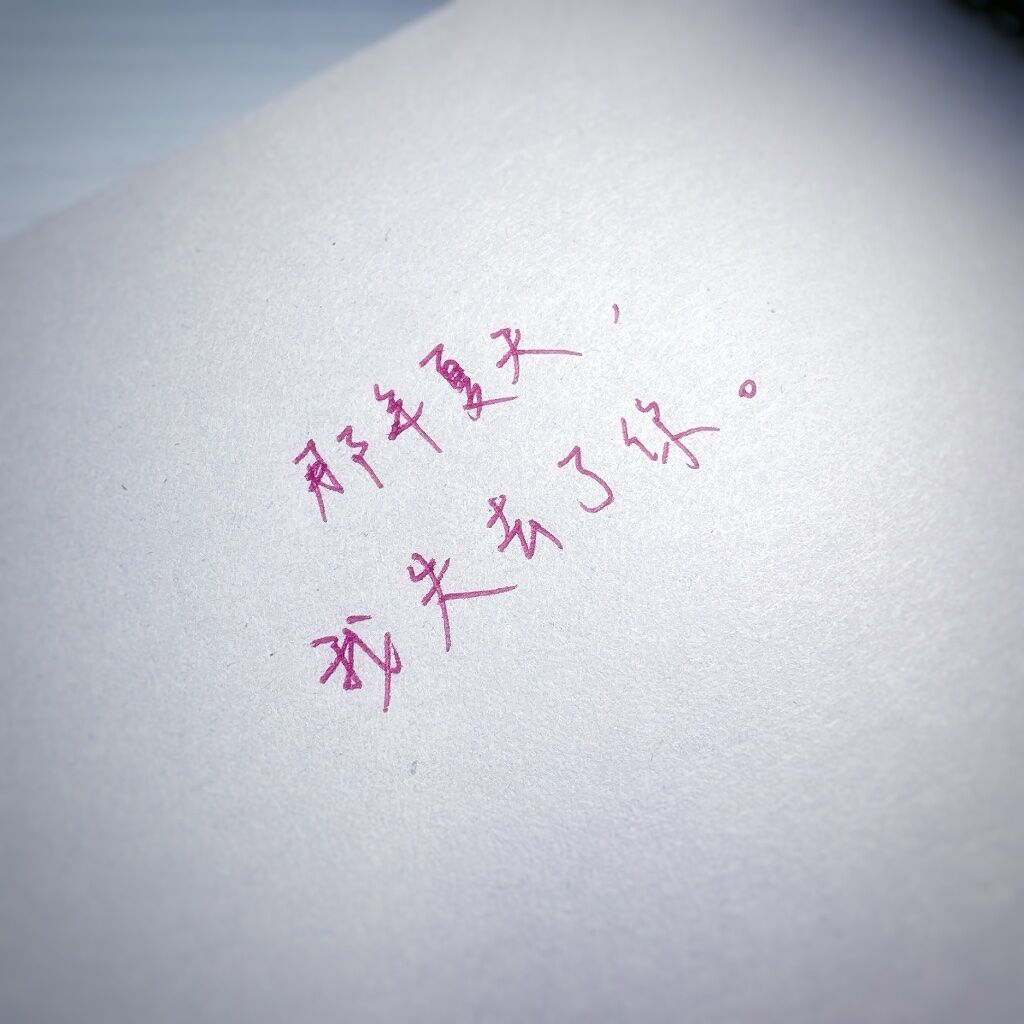 那年夏天，
我失去了你。